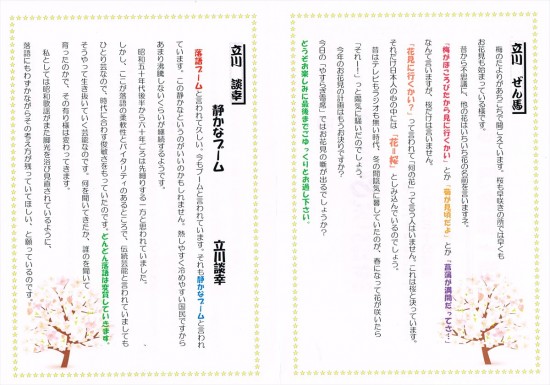 立川 ぜん馬
梅のたよりがあちこちで聞こえています。桜も早咲きの所では早くも
お花見も始まっている様です。
昔から不思議に、他の花はいちいち花の名前を言いますネ。
「梅がほころびたから見に行くかい」とか「菊が見頃だよ」とか「菖蒲が満開だってさ…」
なんて言いますが、桜だけは言いません。
「花見に行くかい？」って言われて「何の花」って言う人はいません。これは桜と決っています。
それだけ日本人の心の中には「花＝桜」としみ込んでいるのでしょう。
昔はテレビもラジオも無い時代、冬の間陰気に暮していたのが、春になって花が咲いたら
「それー！」っと陽気に騒いだのでしょう。
今年のお花見の計画はもうお決りですか？
今日の「やすらぎ寄席」ではお花見の噺が出るでしょうか？
どうぞお楽しみに最後までごゆっくりとお過し下さい。
立川 談幸
静かなブーム
立川談幸
落語ブームと言われて久しい。今もブームと言われています。それも静かなブームと言われ
ています。この静かなというのがいいのかもしれません。熱しやすく冷めやすい国民ですから
あまり沸騰しないくらいが継続するようです。
昭和五十年代後半から六十年ごろは先細りする一方と思われていました。
しかし、ここが落語の柔軟性とバイタリティのあるところで、伝統芸能と言われていましても
ひとり芸なので、時代に合わす俊敏さをもっていたのです。どんどん落語は変貌していきます。
そうやって生き抜いていく芸能なのです。何を聞いてきたか、誰のを聞いて
育ったのかで、その有り様は変わってきます。
私としては昭和歌謡がまた脚光を浴び見直されているように、
落語にもわずかながらその考え方が残っていてほしい、と願っているのです。